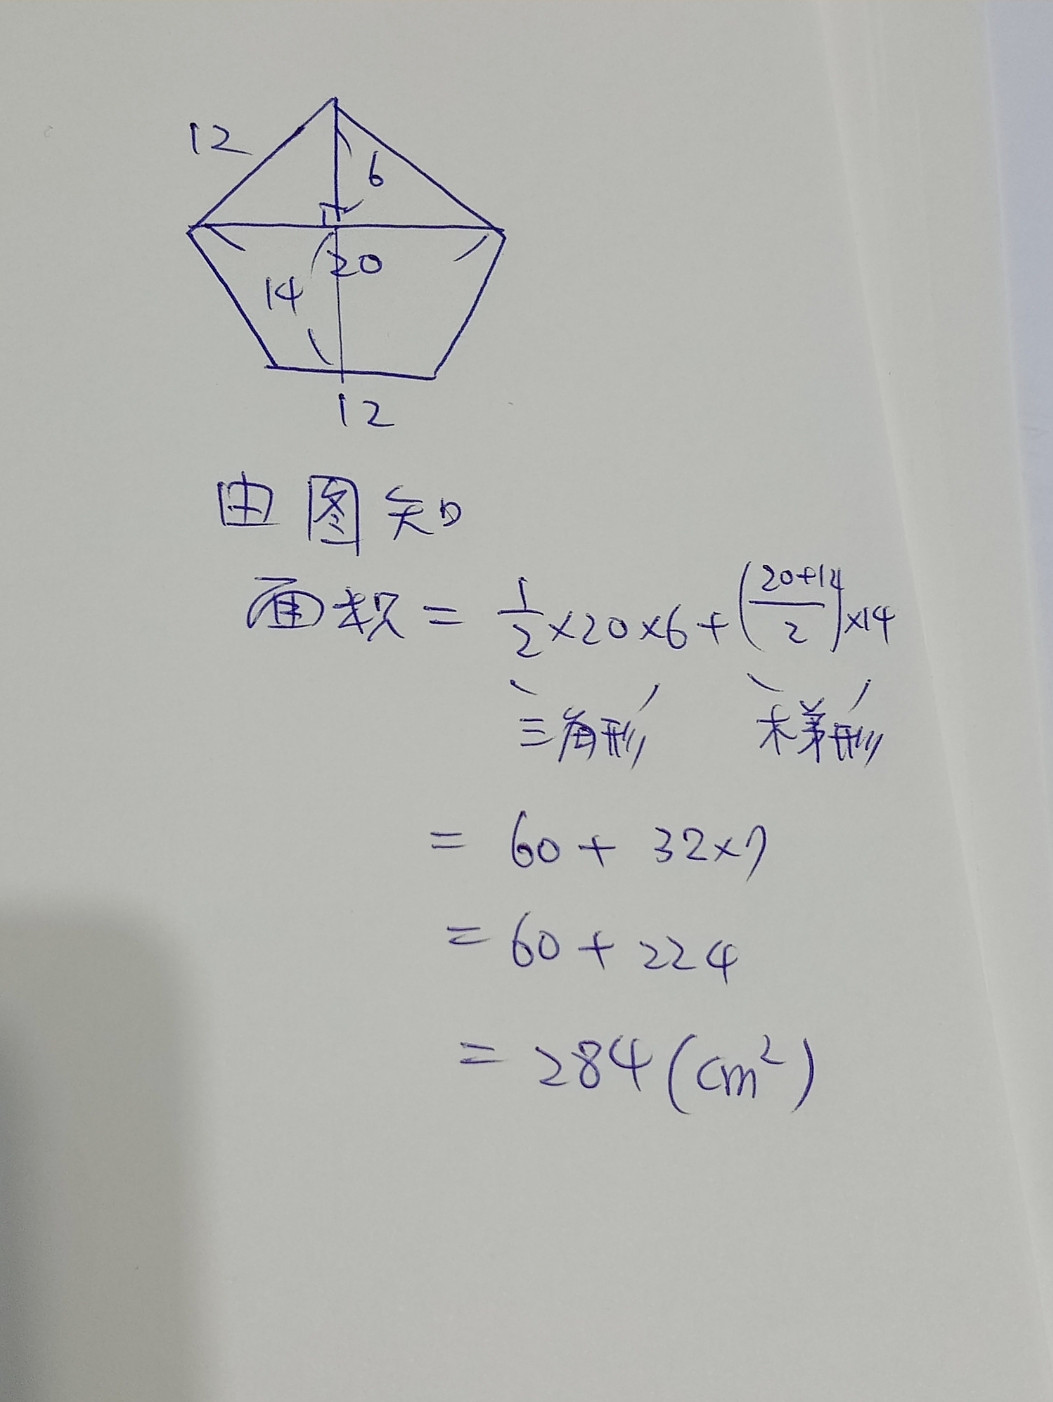 12
6
20
14
12
由图知
面积 = 1/2 ×20×6+(20+14/2)×14
三角形 梯形
= 60 + 32×7
= 60 + 224
= 284 (cm²)